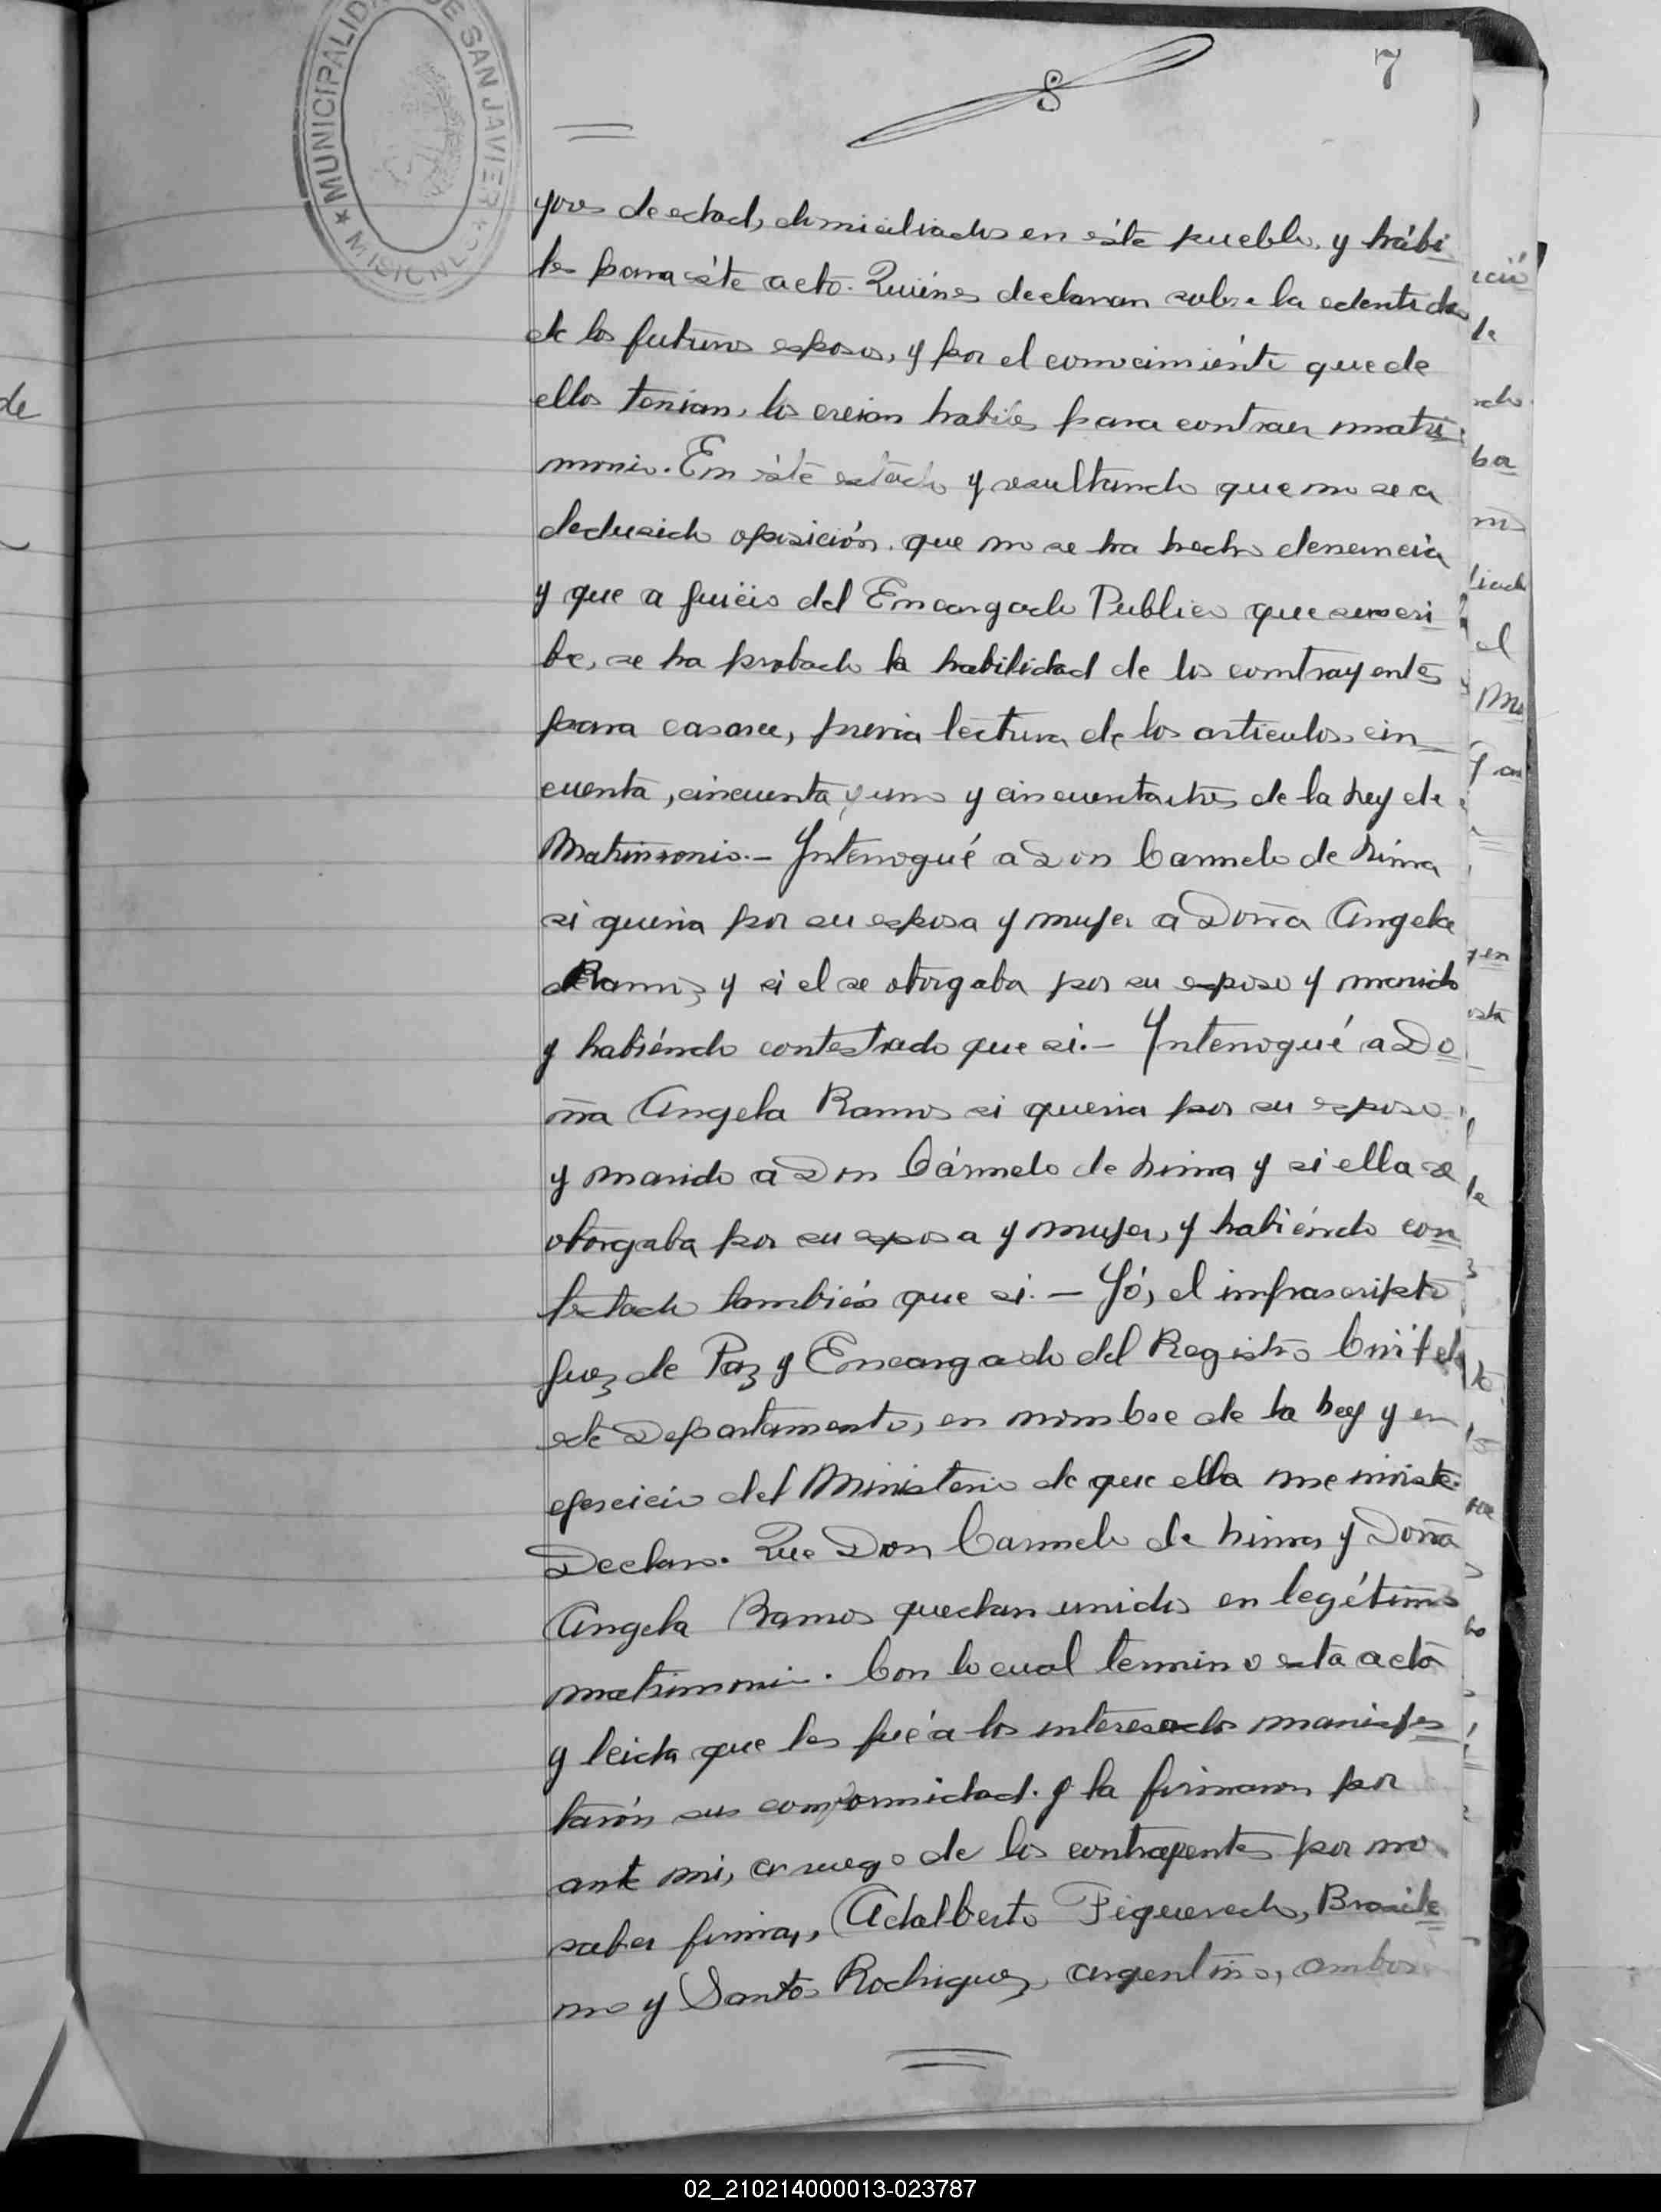 7
MUNICIPALIDAD DE SAN JAVIER
MISIONES
yores de edad, domiciliados en éste pueblo, y hábi
les para éste acto. Quiénes declaran sobre la edentidad
de los futuros esposos, y por el conocimiénto que de
ellos tenian, los creian habiles para contraer matri
monio. En éste estado y resultando que no se a
deducido oposición, que no se ha hecho denuncia
y que a juicio del Encargado Publico que suscri
be, se ha probado la habilidad de los contrayentes
para casarse, previa lectura de los articulos cin
cuenta, cincuenta y uno y cincuentaitres de la Ley de
Matrimonio.- Ynterrogué a Don Carmelo de Lima
si queria por su esposa y mujer a Doña Angela
Ramos y si el se otorgaba por su esposo y marido
y habiéndo contestado que si.- Ynterrogué a Do
ña Angela Ramos si queria por su esposo
y marido a Don Cármelo de Lima y si ella se
otorgaba por su esposa y mujer, y habiéndo con
testado tambien que si.- Yó, el infrascripto
Juez de Paz y Encargado del Registro Civil de
este Departamento, en nombre de la Ley y en
ejercicio del Ministerio de que ella me inviste.
Declaro. Que Don Carmelo de Lima y Doña
Angela Ramos quedan unidos en legétimo
matrimonio. Con lo cual termino esta acta
y leida que les fué a los interesados manifes
tarón sus conformidad. y la firmaron por
ante mi, a ruego de los contrayentes por no
saber firmar, Adalberto Figueredo, Brasile
no y Santos Rodriguez, argentino, ambos
02_210214000013-023787